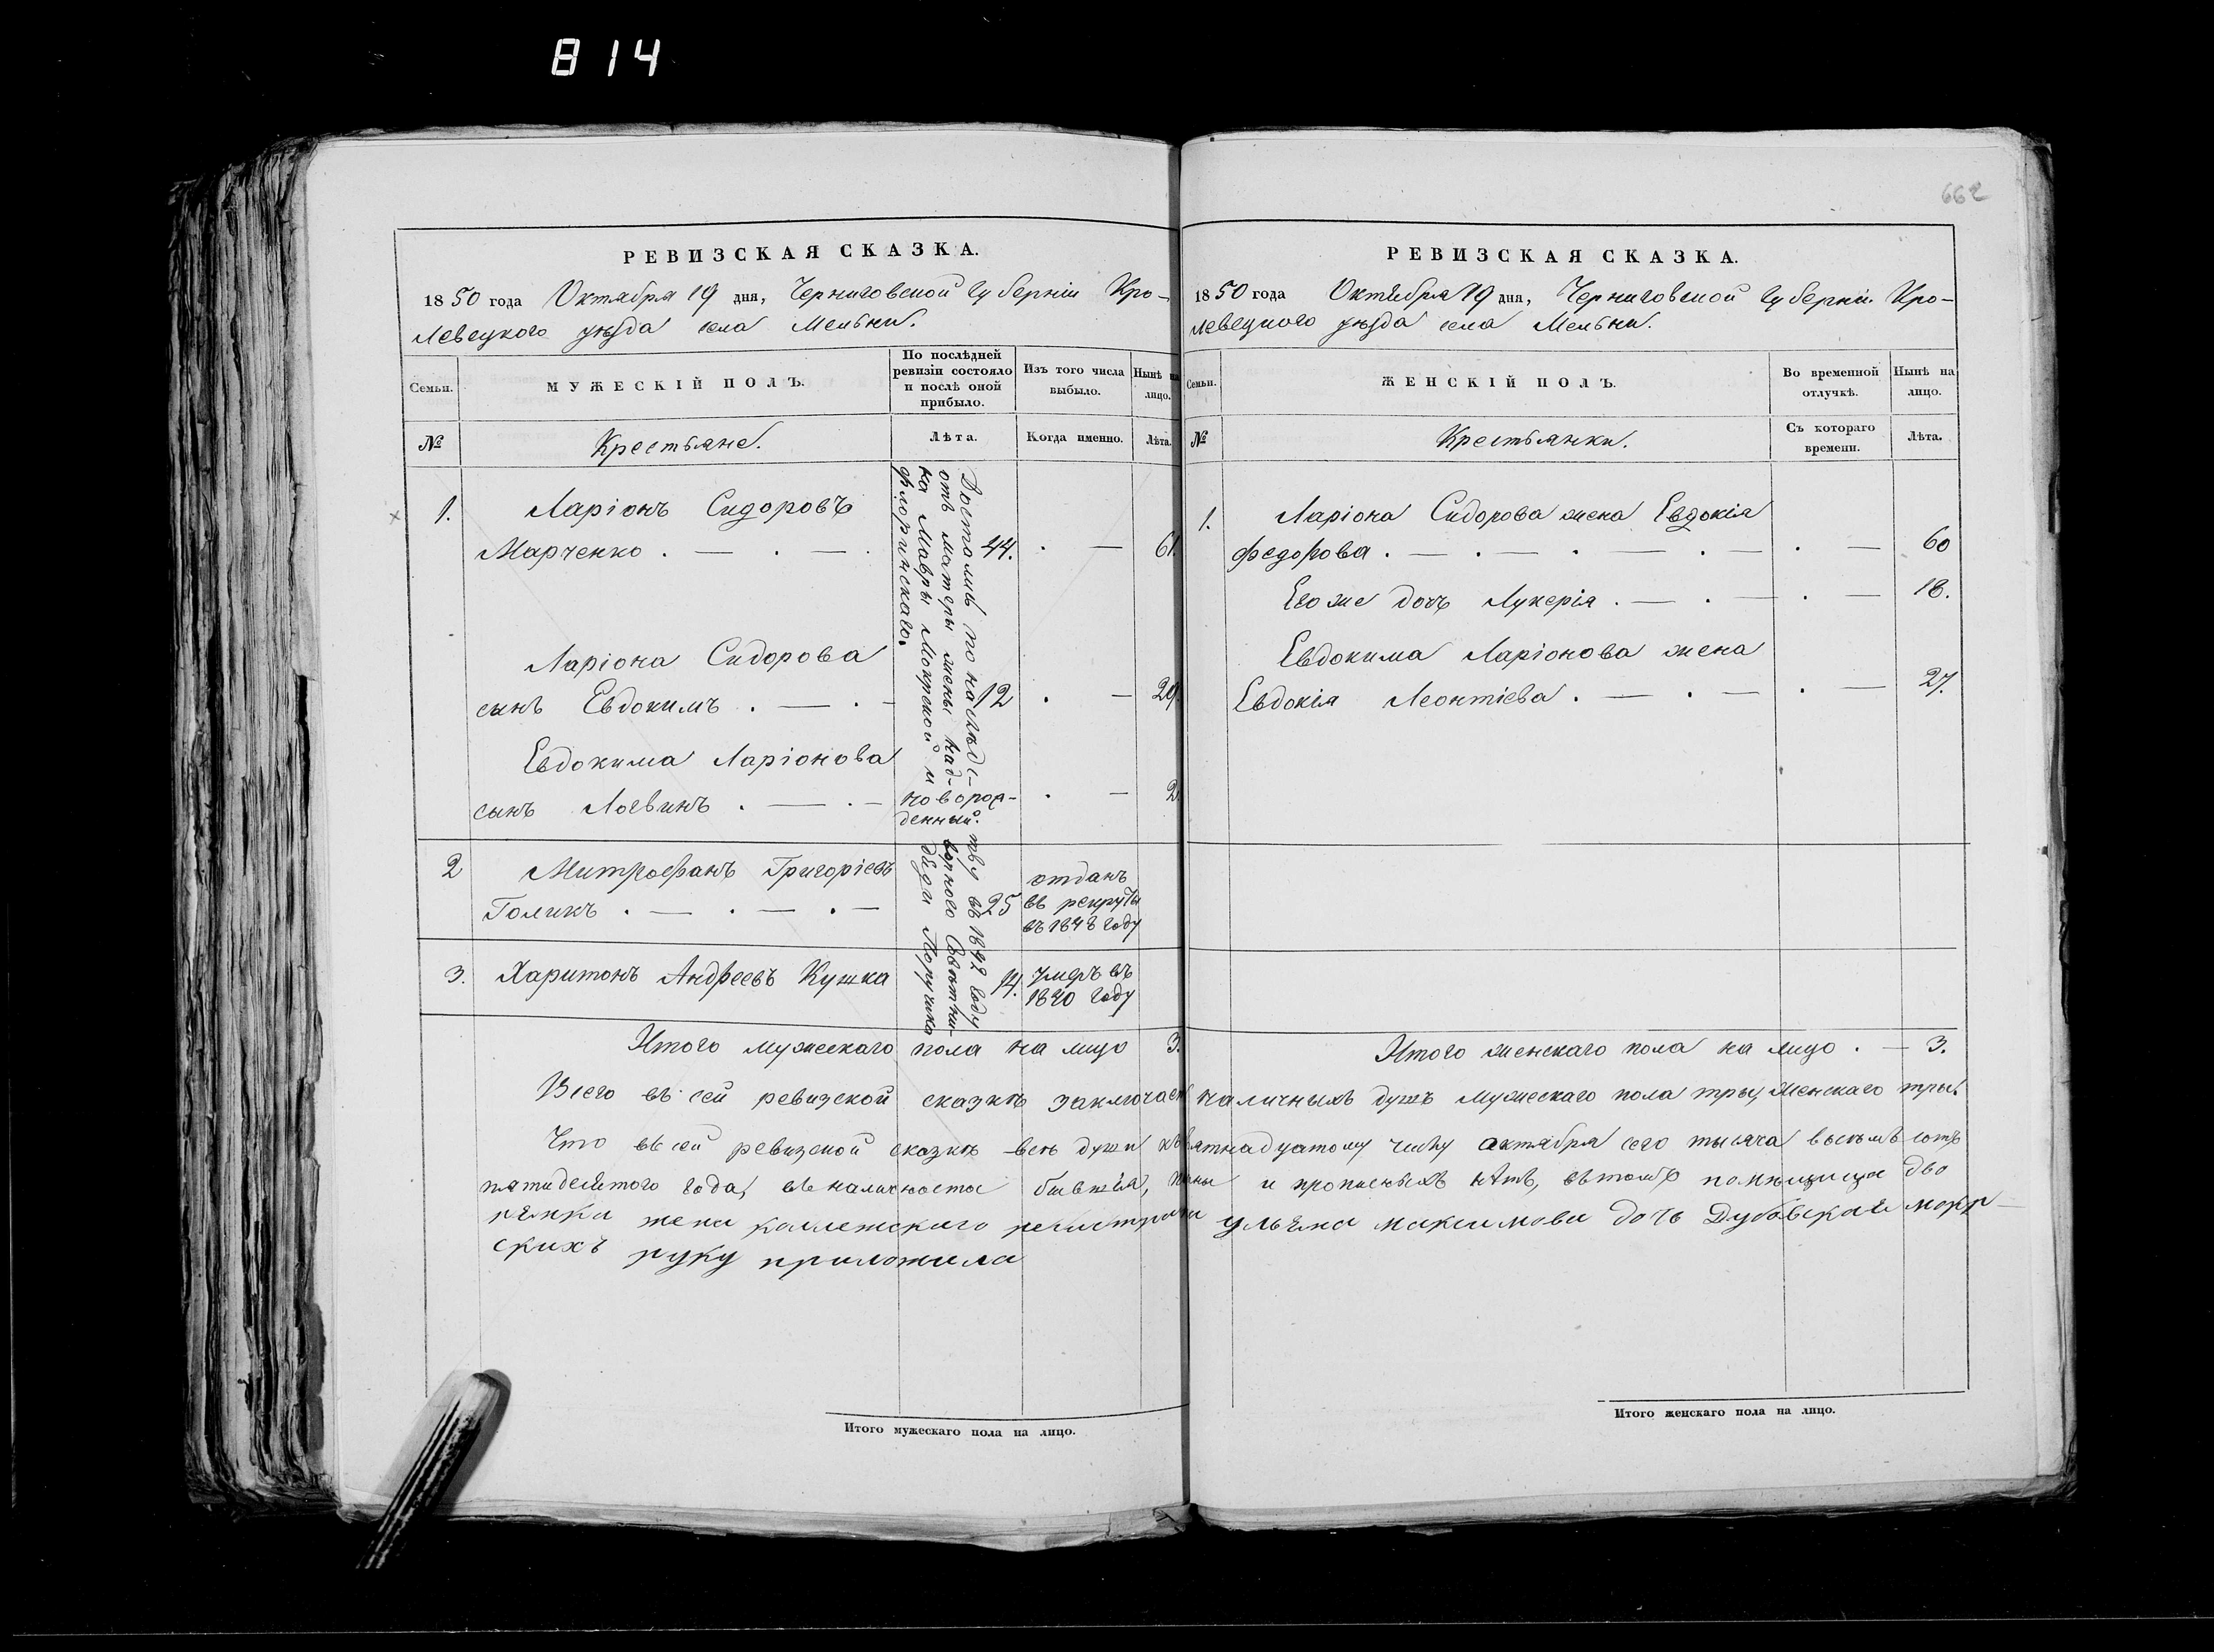 814
662
РЕВИЗСКАЯ СКАЗКА.
1850 года Октября 19 дня, Черниговской губерніи Кро-
левецкого уѣзда села Мельни.
Семьи.
МУЖЕСКІЙ ПОЛЪ.
По послѣдней ревизіи состояло и послѣ оной прибыло.
Изъ того числа выбыло.
Нынѣ на лицо.
№
Крестьяне.
Лѣта.
Когда именно.
Лѣта.
1. Ларіонъ Сидоровъ
Марченко . — . — . 44. . — 61.
Ларіона Сидорова
сынъ Евдокимъ . — . — 12 . — 29.
Евдокима Ларіонова
сынъ Логвинъ . — . — новорож-
денный. . — 2.
Достались по наслѣдс-
тву въ 1842 году
отъ матеры жены над-
ворного Совѣтни-
ка Мавры Мокрской и
дѣди Поручика
Флоринскаго.
2 Митрофанъ Григоріевъ
Голикъ . — . — . — 25
отданъ
въ рекруты
въ 1848 году
3. Харитонъ Андреевъ Кужка 14.
умеръ въ
1840 году
Итого мужескаго пола на лицо 3.
РЕВИЗСКАЯ СКАЗКА.
1850 года Октября 19 дня, Черниговской губерніи Кро-
левецкого уѣзда села Мельни.
Семьи.
ЖЕНСКІЙ ПОЛЪ.
Во временной отлучкѣ.
Нынѣ на лицо.
№
Крестьянки.
Съ котораго времени.
Лѣта.
1. Ларіона Сидорова жена Евдокія
Федорова . — . — . — . — . — 60
Его же дочь Лукерія . — . — . — 18.
Евдокима Ларіонова жена
Евдокія Леонтіева . — . — . — 27.
Итого женскаго пола на лицо . — 3.
Всего въ сей ревизской сказкѣ заключаетъ наличныхъ душъ мужескаго пола три, женскаго три.
Что въ сей ревизской сказкѣ всѣ души къ девятнадцатому числу октября сего тысяча восемъ сотъ
пятидесятого года, въ наличности бывшія, и прописныхъ нѣтъ, въ томъ помѣщица дво
рянка жена коллежского регистратора ульяна максимова дочь Дубовская мокр—
скихъ руку приложила
Итого мужескаго пола на лицо.
Итого женскаго пола на лицо.